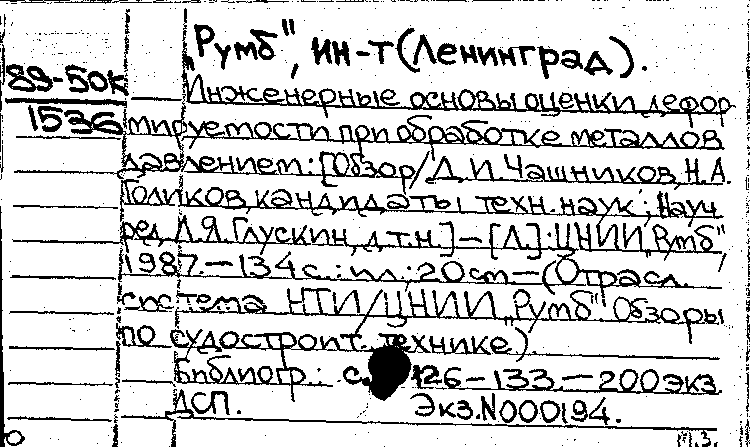 „Румб", ин-т (Ленинград).
89-50К
1536
Инженерные основы оценки дефор
мируемости при обработке металлов
давлением: [Обзор/Д.И.Чашников, Н.А.
Голиков, кандидаты техн. наук; Науч.
ред. Л.Я.Глускин, д.т.н.] — [Л.]: ЦНИИ „Румб",
1987. — 134 с.: ил.; 20 cm — (Отрасл.
система НТИ/ЦНИИ „Румб". Обзоры
по судостроит. технике).
Библиогр.: с. 126-133. — 200 экз.
ДСП. Экз.N000194.
М.З.